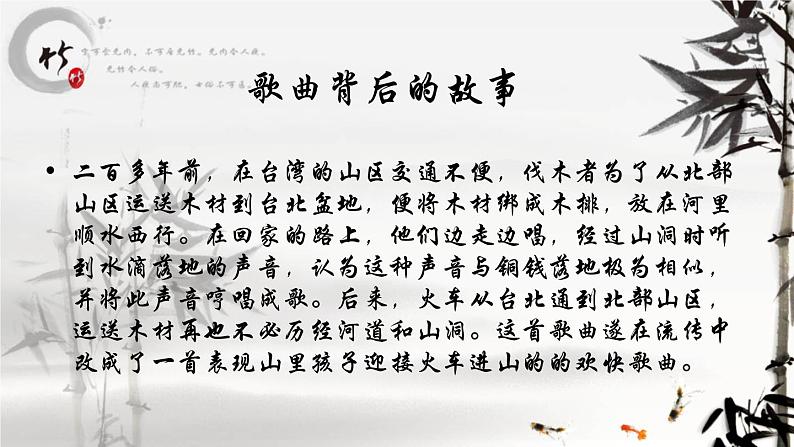 竹
宁可食无肉，不可居无竹。无肉令人瘦，
无竹令人俗。
人瘦尚可肥，士俗不可医。
歌曲背后的故事
• 二百多年前，在台湾的山区交通不便，伐木者为了从北部
山区运送木材到台北盆地，便将木材绑成木排，放在河里
顺水西行。在回家的路上，他们边走边唱，经过山洞时听
到水滴落地的声音，认为这种声音与铜钱落地极为相似，
并将此声音哼唱成歌。后来，火车从台北通到北部山区，
运送木材再也不必历经河道和山洞。这首歌曲遂在流传中
改成了一首表现山里孩子迎接火车进山的的欢快歌曲。